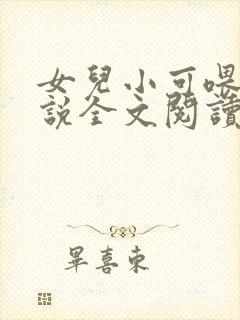 女兒小可喂
說全文閱讀
畢喜東